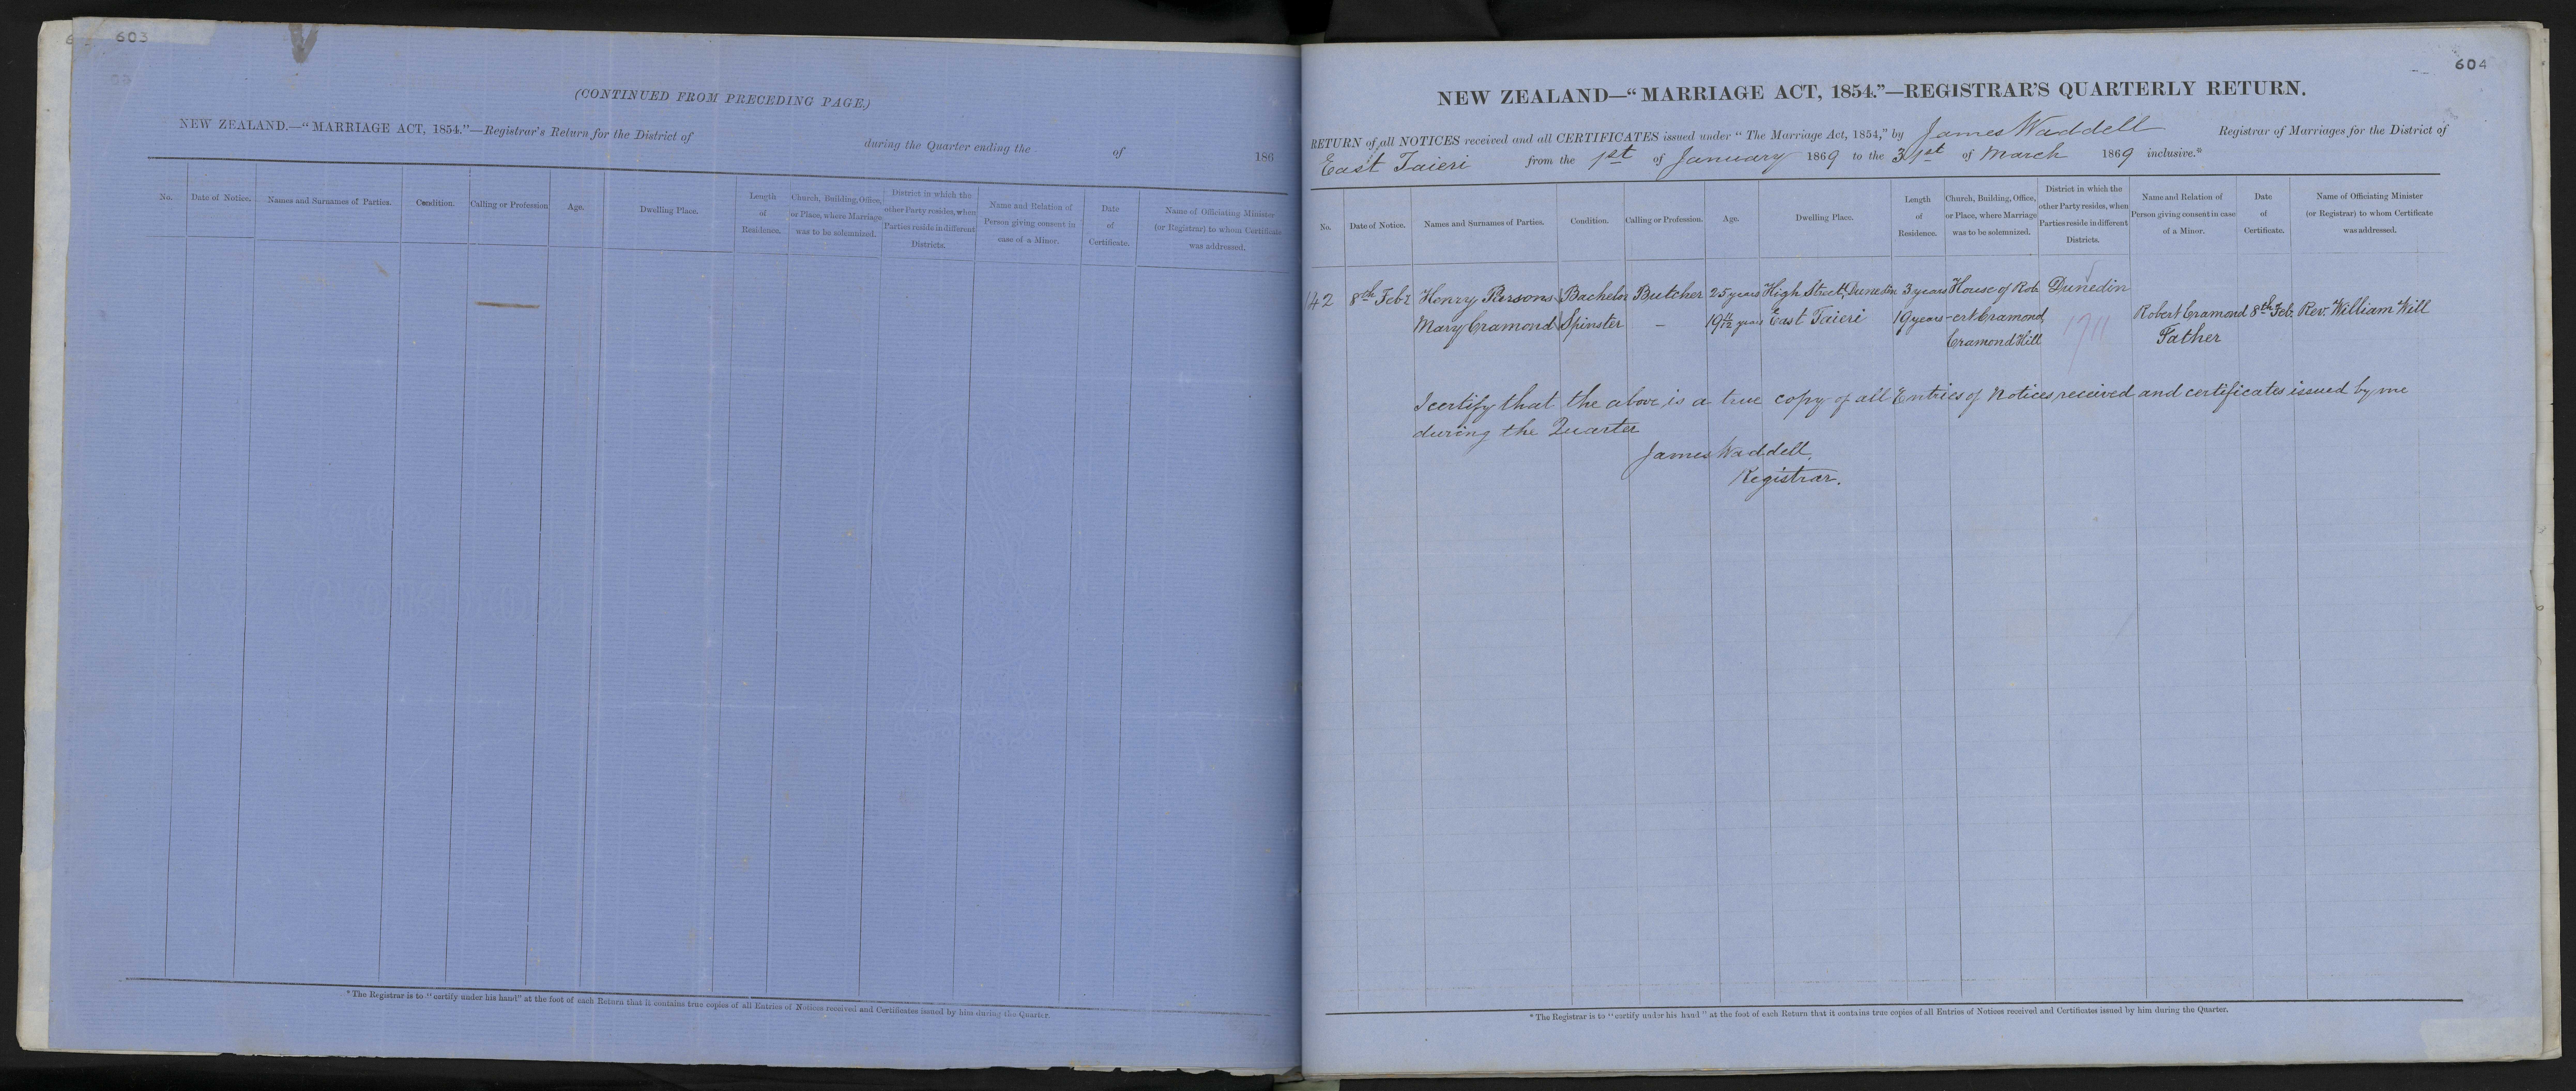 603
(CONTINUED FROM PRECEDING PAGE.)
NEW ZEALAND.—"MARRIAGE ACT, 1854."—Registrar's Return for the District of during the Quarter ending the of 186
No. Date of Notice. Names and Surnames of Parties. Condition. Calling or Profession Age. Dwelling Place. Length of Residence. Church, Building, Office, or Place, where Marriage was to be solemnized. District in which the other Party resides, when Parties reside in different Districts. Name and Relation of Person giving consent in case of a Minor. Date of Certificate. Name of Officiating Minister (or Registrar) to whom Certificate was addressed.
* The Registrar is to "certify under his hand" at the foot of each Return that it contains true copies of all Entries of Notices received and Certificates issued by him during the Quarter.
604
NEW ZEALAND—"MARRIAGE ACT, 1854."—REGISTRAR'S QUARTERLY RETURN.
RETURN of all NOTICES received and all CERTIFICATES issued under "The Marriage Act, 1854," by James Waddell Registrar of Marriages for the District of
East Taieri from the 1st of January 1869 to the 31st of March 1869 inclusive.*
No. Date of Notice. Names and Surnames of Parties. Condition. Calling or Profession. Age. Dwelling Place. Length of Residence. Church, Building, Office, or Place, where Marriage was to be solemnized. District in which the other Party resides, when Parties reside in different Districts. Name and Relation of Person giving consent in case of a Minor. Date of Certificate. Name of Officiating Minister (or Registrar) to whom Certificate was addressed.
142 8th Feby Henry Persons Bachelor Butcher 25 years High Street, Dunedin 3 years House of Rob Dunedin
Mary Cramond Spinster – 19 11/12 years East Taieri 19 years -ert Cramond, Robert Cramond 8th Feb. Rev. William Will
Cramond Hill 1711 Father
I certify that the above is a true copy of all Entries of Notices received and certificates issued by me
during the Quarter
James Waddell,
Registrar.
* The Registrar is to "certify under his hand" at the foot of each Return that it contains true copies of all Entries of Notices received and Certificates issued by him during the Quarter.